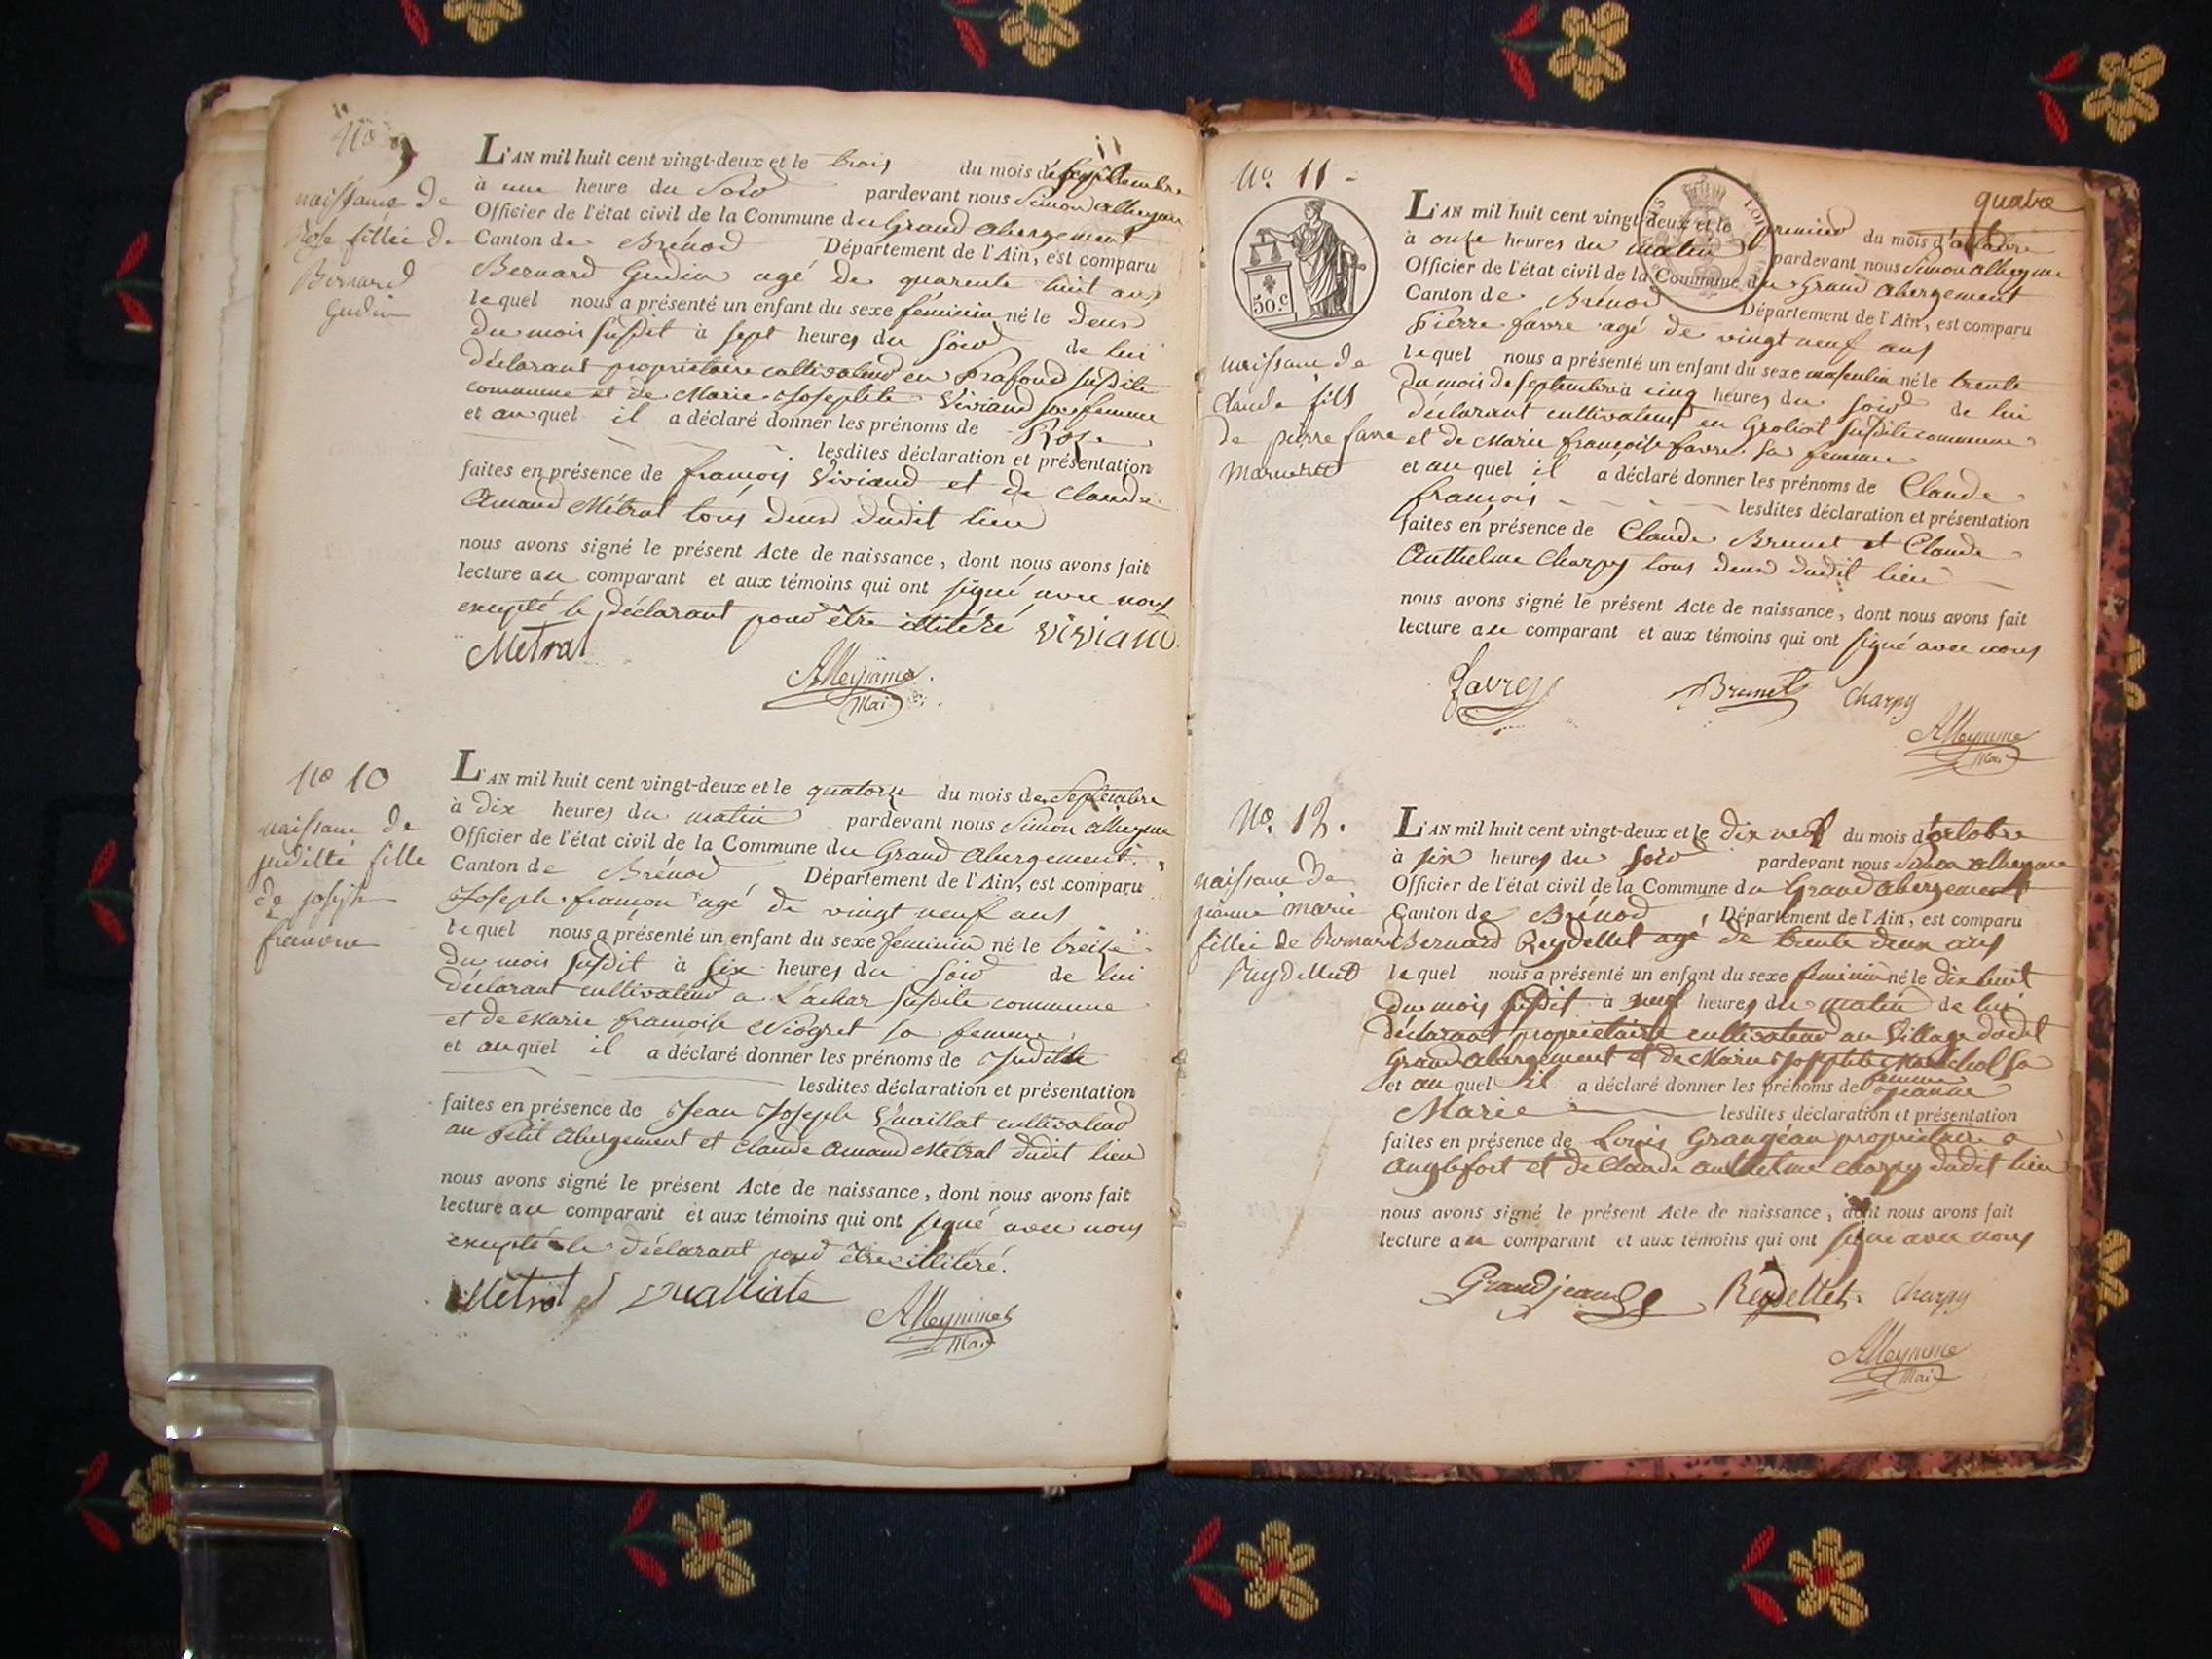 No 9
naissance de
Rose fillie de
Bernard
Gudin
L'AN mil huit cent vingt-deux et le trois du mois de Septembre
à une heure du Soir pardevant nous Simon Alleyme
Officier de l'état civil de la Commune du Grand Abergement
Canton de Brénod Département de l'Ain, est comparu
Bernard Gudin agé de quarente huit ans
lequel nous a présenté un enfant du sexe féminin né le deux
du mois susdit à sept heures du soir de lui
déclarant propriétaire cultivateur en Prafond susdite
commune et de Marie Josephte Viviand sa femme
et auquel il a déclaré donner les prénoms de Rose
lesdites déclaration et présentation
faites en présence de françois Viviand et de Claude
Amand Métral tous deux dudit lieu
nous avons signé le présent Acte de naissance, dont nous avons fait
lecture au comparant et aux témoins qui ont signé avec nous
excepté le déclarant pour être illitéré
viviand
Metral
Alleyme
Mai
No 10
naissance de
judithe fille
de joseph
françon
L'AN mil huit cent vingt-deux et le quatorze du mois de Septembre
à dix heures du matin pardevant nous Simon Alleyme
Officier de l'état civil de la Commune du Grand Abergement
Canton de Brénod Département de l'Ain, est comparu
Joseph françon agé de vingt neuf ans
lequel nous a présenté un enfant du sexe feminin né le treize
du mois susdit à six heures du soir de lui
déclarant cultivateur a L'achar susdite commune
et de Marie francoise Niogret sa femme
et auquel il a déclaré donner les prénoms de Judithe
lesdites déclaration et présentation
faites en présence de Jean Joseph Vuaillat cultivateur
au Petit Abergement et Claude Amand Métral dudit lieu
nous avons signé le présent Acte de naissance, dont nous avons fait
lecture au comparant et aux témoins qui ont signé avec nous
excepté le déclarant pour être illitéré.
Metral
Alleyme
Mai
quatre
No. 11
50.c
naissance de
Claude fils
de pierre favre
L'AN mil huit cent vingt-deux et le premier du mois d'octobre
à onze heures du matin pardevant nous Simon Alleyme
Officier de l'état civil de la Commune du Grand Abergement
Canton de Brénod Département de l'Ain, est comparu
Pierre favre agé de vingt neuf ans
lequel nous a présenté un enfant du sexe masculin né le trente
du mois de septembre à cinq heures du soir de lui
déclarant cultivateur en Groliot susdite commune
et de Marie françoise favre sa femme
et auquel il a déclaré donner les prénoms de Claude
françois lesdites déclaration et présentation
faites en présence de Claude Brunet et Claude
Anthelme Charpy tous deux dudit lieu
nous avons signé le présent Acte de naissance, dont nous avons fait
lecture au comparant et aux témoins qui ont signé avec nous
favre
Brunet
Charpy
Alleyme
Mai
No. 12.
naissance de
jeanne marie
fillie de Bernard
Reydellet
L'AN mil huit cent vingt-deux et le dix neuf du mois d'octobre
à six heures du soir pardevant nous Simon Alleyme
Officier de l'état civil de la Commune du Grand Abergement
Canton de Brénod Département de l'Ain, est comparu
Bernard Reydellet agé de trente deux ans
lequel nous a présenté un enfant du sexe feminin né le dix huit
du mois susdit à neuf heures du matin de lui
déclarant propriétaire cultivateur au Village dudit
Grand Abergement et de Marie Josephte sa
femme
et auquel il a déclaré donner les prénoms de Jeanne
Marie lesdites déclaration et présentation
faites en présence de Louis Grangéan propriétaire a
Anglefort et de Claude Anthelme Charpy dudit lieu
nous avons signé le présent Acte de naissance, dont nous avons fait
lecture au comparant et aux témoins qui ont signé avec nous
Grandjean
Reydellet
Charpy
Alleyme
Mai